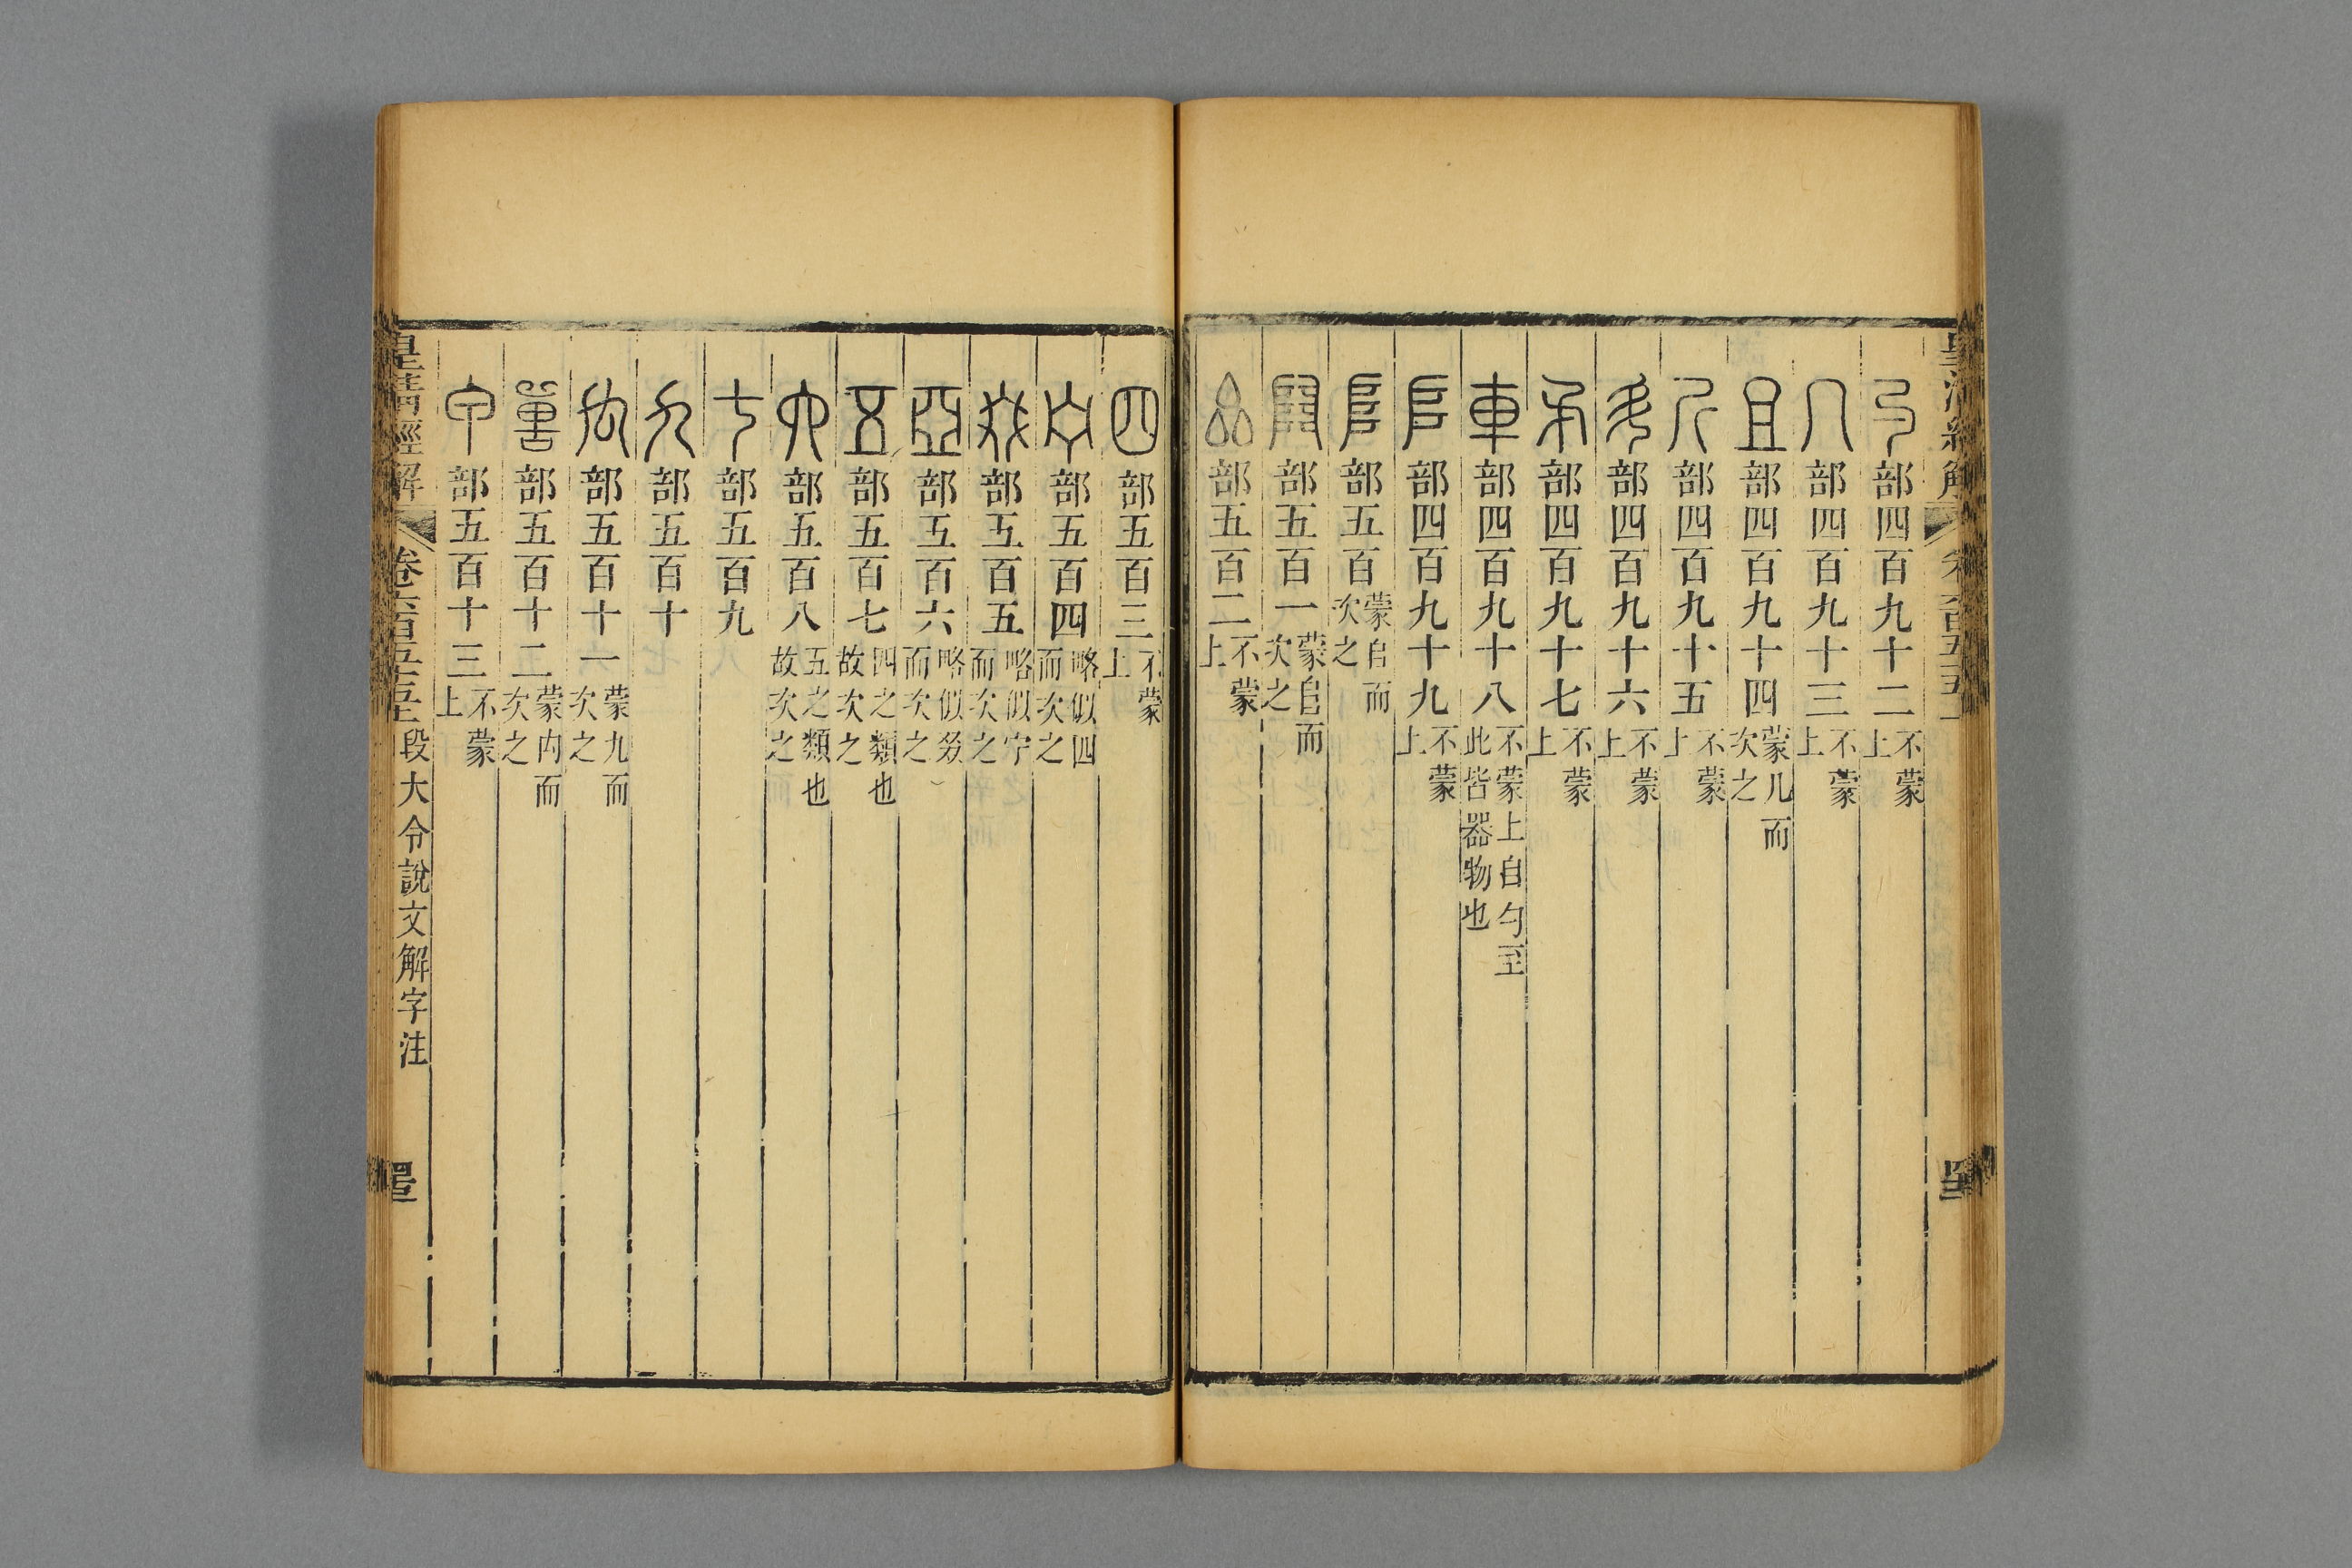 勺部四百九十二不蒙上
几部四百九十三不蒙上
且部四百九十四蒙几而次之
斤部四百九十五不蒙上
斗部四百九十六不蒙上
矛部四百九十七不蒙上
車部四百九十八不蒙上自勺至此皆器物也
𠂤部四百九十九不蒙上
𨸏部五百蒙𠂤而次之
𨺅部五百一蒙𨸏而次之
厽部五百二不蒙上
四部五百三不蒙上
宁部五百四略似四而次之
叕部五百五略似宁而次之
亞部五百六略似叕而次之
五部五百七四之類也故次之
六部五百八五之類也故次之
七部五百九
九部五百十
禸部五百十一蒙九而次之
嘼部五百十二蒙内而次之
甲部五百十三不蒙上
皇清經解 卷六百五十五 段大令說文解字注